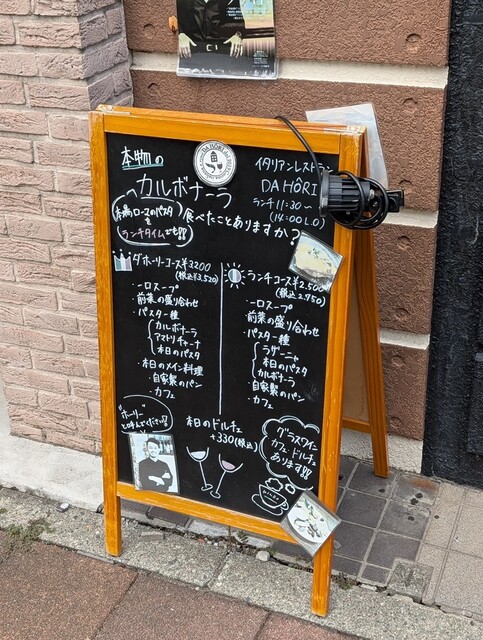 本物の
カルボナーラ
食べたことありますか?
イタリアンレスト
DA HÔRI
ランチ11:30〜
(14:00L.O)
本場ローマのパスタ
を
ランチタイムでも!!
ダ ホーリーコース¥3200
(税込¥3,520)
・一口スープ
・前菜の盛り合わせ
・パスタ一種
カルボナーラ
アマトリチャーナ
本日のパスタ
・本日のメイン料理
・自家製のパン
・カフェ
ランチコース¥2.500
(税込2.750)
・一口スープ
・前菜の盛り合わせ
・パスタ一種
ラザーニャ
本日のパスタ
カルボナーラ
・自家製のパン
・カフェ
"ホーリー"
と呼んでください!!
本日のドルチェ
+330(税込)
グラスワイン
カフェ・ドルチェ
あります!!